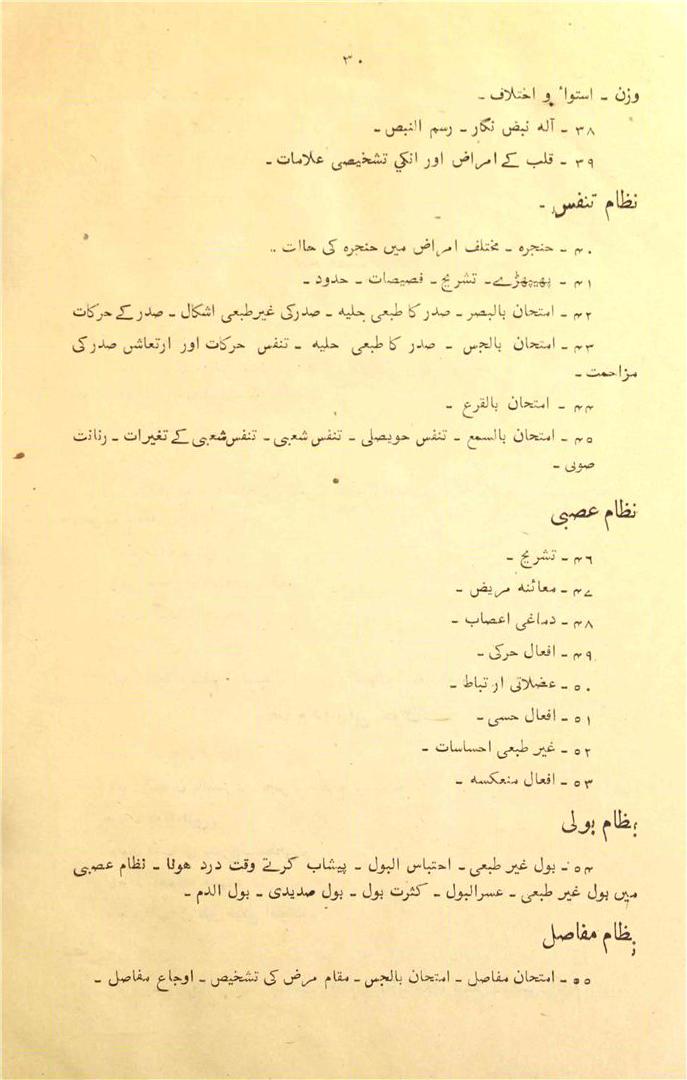 ۳۰
وزن ۔ استواٴ و اختلاف ۔
۳۸ ۔ آلہ نبض نگار ۔ رسم النبض ۔
۳۹ ۔ قلب کے امراض اور انکي تشخیصی علامات ۔
نظام تنفس ۔
۴۰ ۔ حنجرہ ۔ مختلف امراض میں حنجرہ کی حالت ۔
۴۱ ۔ پھیپھڑے ۔ تشریح ۔ فصیصات ۔ حدود ۔
۴۲ ۔ امتحان بالبصر ۔ صدر کا طبعی حلیہ ۔ صدرکی غیرطبعی اشکال ۔ صدر کے حرکات
۴۳ ۔ امتحان بالجس ۔ صدر کا طبعی حلیہ ۔ تنفس حرکات اور ارتعاش صدر کی
مزاحمت ۔
۴۴ ۔ امتحان بالقرع ۔
۴۵ ۔ امتحان بالسمع ۔ تنفس حویصلی ۔ تنفس شعبی ۔ تنفس شعبی کے تغیرات ۔ رنانت
صوتی ۔
نظام عصبی
۴۶ ۔ تشریح ۔
۴۷ ۔ معائنہ مریض ۔
۴۸ ۔ دماغی اعصاب ۔
۴۹ ۔ افعال حرکی ۔
۵۰ ۔ عضلاتی ارتباط ۔
۵۱ ۔ افعال حسی ۔
۵۲ ۔ غیر طبعی احساسات ۔
۵۳ ۔ افعال منعکسہ ۔
نظام بولی
۵۴ ۔ بول غیر طبعی ۔ احتباس البول ۔ پیشاب کرتے وقت درد ہونا ۔ نظام عصبی
میں بول غیر طبعی ۔ عسرالبول ۔ کثرت بول ۔ بول صدیدی ۔ بول الدم ۔
نظام مفاصل
۵۵ ۔ امتحان مفاصل ۔ امتحان بالجس ۔ مقام مرض کی تشخیص ۔ اوجاع مفاصل ۔